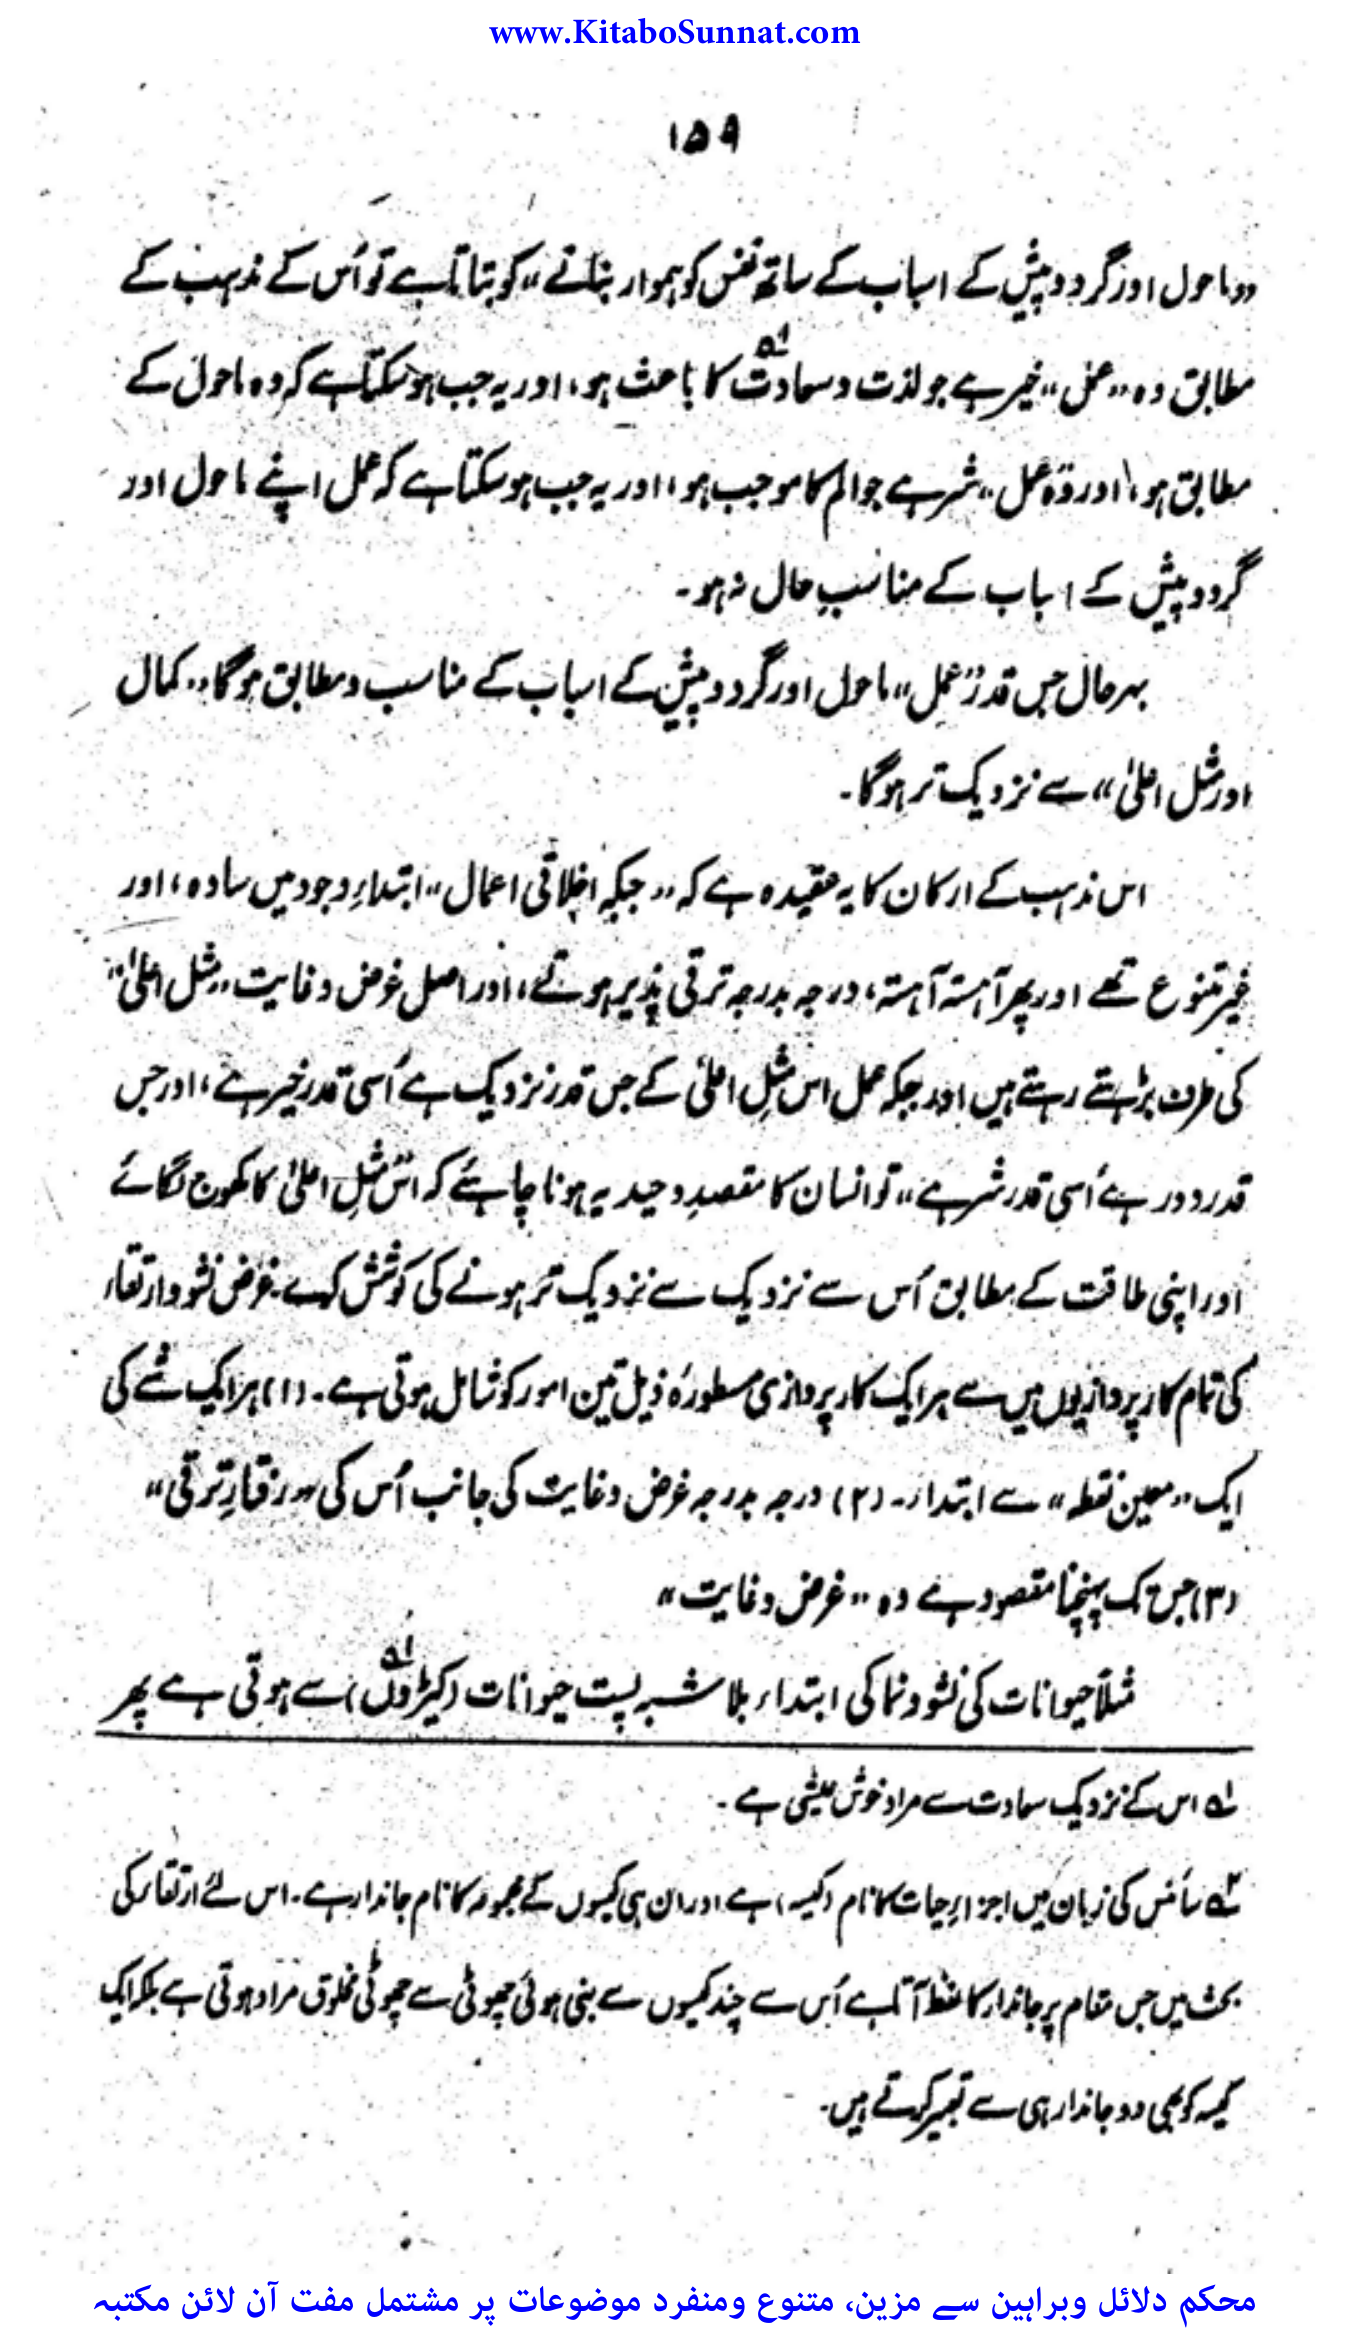 www.KitaboSunnat.com
۱۵۹
„ماحول اور گرد و پیش کے اسباب کے ساتھ نفس کو ہموار بنانے“ کو بتاتا ہے تو اُس کے مذہب کے
مطابق وہ „عمل“ خیر ہے جو لذت و سعادت۱؎ کا باعث ہو، اور یہ جب ہو سکتا ہے کہ وہ ماحول کے
مطابق ہو، اور وہ عمل“ شر ہے جو الم کا موجب ہو، اور یہ جب ہو سکتا ہے کہ عمل اپنے ماحول اور
گرد و پیش کے اسباب کے مناسبِ حال نہ ہو۔
بہرحال جس قدر „عمل“ ماحول اور گرد و پیش کے اسباب کے مناسب و مطابق ہوگا „کمال
اور مثل اعلیٰ“ سے نزدیک تر ہوگا۔
اس مذہب کے ارکان کا یہ عقیدہ ہے کہ „جبکہ اخلاقی اعمال“ ابتداءِ وجود میں سادہ، اور
غیر متنوع تھے اور پھر آہستہ آہستہ، درجہ بدرجہ ترقی پذیر ہوتے، اور اصل غرض و غایت „مثل اعلیٰ“
کی طرف بڑہتے رہتے ہیں اور جبکہ عمل اس مثلِ اعلیٰ کے جس قدر نزدیک ہے اُسی قدر خیر ہے، اور جس
قدر دور ہے اُسی قدر شر ہے“ تو انسان کا مقصدِ وحید یہ ہونا چاہئے کہ اس مثلِ اعلیٰ کا کھوج لگائے
اور اپنی طاقت کے مطابق اُس سے نزدیک سے نزدیک تر ہونے کی کوشش کرے۔ غرض نشو و ارتقاء
کی تمام کارپردازیوں میں سے ہر ایک کارپردازی مسطورۂ ذیل تین امور کو شامل ہوتی ہے۔ (۱) ہر ایک شے کی
ایک „معین نقطہ“ سے ابتداء۔ (۲) درجہ بدرجہ غرض و غایت کی جانب اُس کی „رفتارِ ترقی“
(۳) جس تک پہنچنا مقصود ہے وہ „غرض و غایت“
مثلاً حیوانات کی نشو و نما کی ابتداء بلا شبہ پست حیوانات (کیڑوں۱؎) سے ہوتی ہے پھر
۱؎ اس کے نزدیک سعادت سے مراد خوش عیشی ہے۔
۲؎ سائنس کی زبان میں اجزاءِ حیات کا نام (کیسہ) ہے اور ان ہی کیسوں کے مجموعہ کا نام جاندار ہے۔ اس لئے ارتقاء کی
بحث میں جس مقام پر جاندار کا لفظ آتا ہے اُس سے چند کیسوں سے بنی ہوئی چھوٹی سے چھوٹی مخلوق مراد ہوتی ہے بلکہ ایک
کیسہ کو بھی وہ جاندار ہی سے تعبیر کرتے ہیں۔
محکم دلائل وبراہین سے مزین، متنوع ومنفرد موضوعات پر مشتمل مفت آن لائن مکتبہ